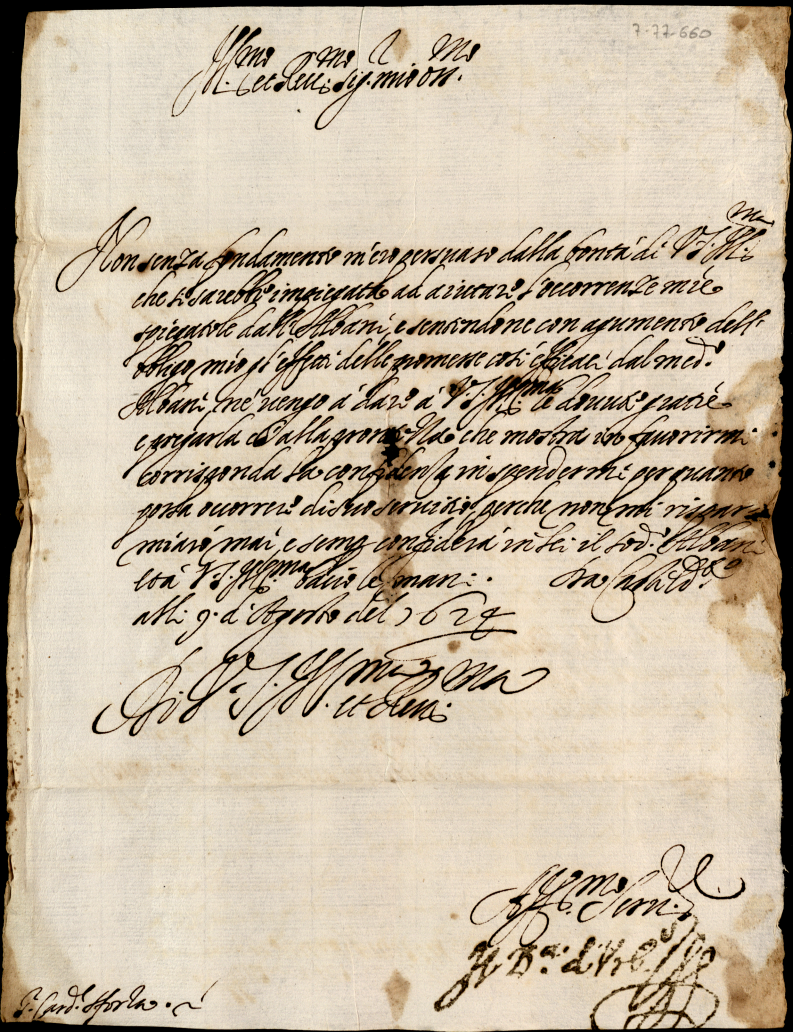 7-77-660
Ill.mo et Rev.mo Sig.r mio oss.mo
Non senza fondamento m'ero persuaso dalla bontà di V.S. Ill.ma
che si sarebbe impiegata ad aiutare l'occorrenze mie
spiegatele dall'Albani, e sentendone con augumento dell'
obligo mio gl'effetti delle promesse così dal med.o
Albani, ne vengo à dare à V.S. Ill.ma le douute gratie
e pregarla che alla che mostra in fauorirmi
corrisponda la confidenza in spendermi per quanto
possa occorrere di suo seruitio, perche non mi rispar
miarò mai, e sempre in lei il sod.o Albani
et à V.S. Ill.ma bacio le mani. Da
alli 9. d'Agosto del 1624
Di V.S. Ill.ma et Rev.ma
Aff.mo Seru.re
Il D.ca d'Urb.o
S.r Card.l Sforza